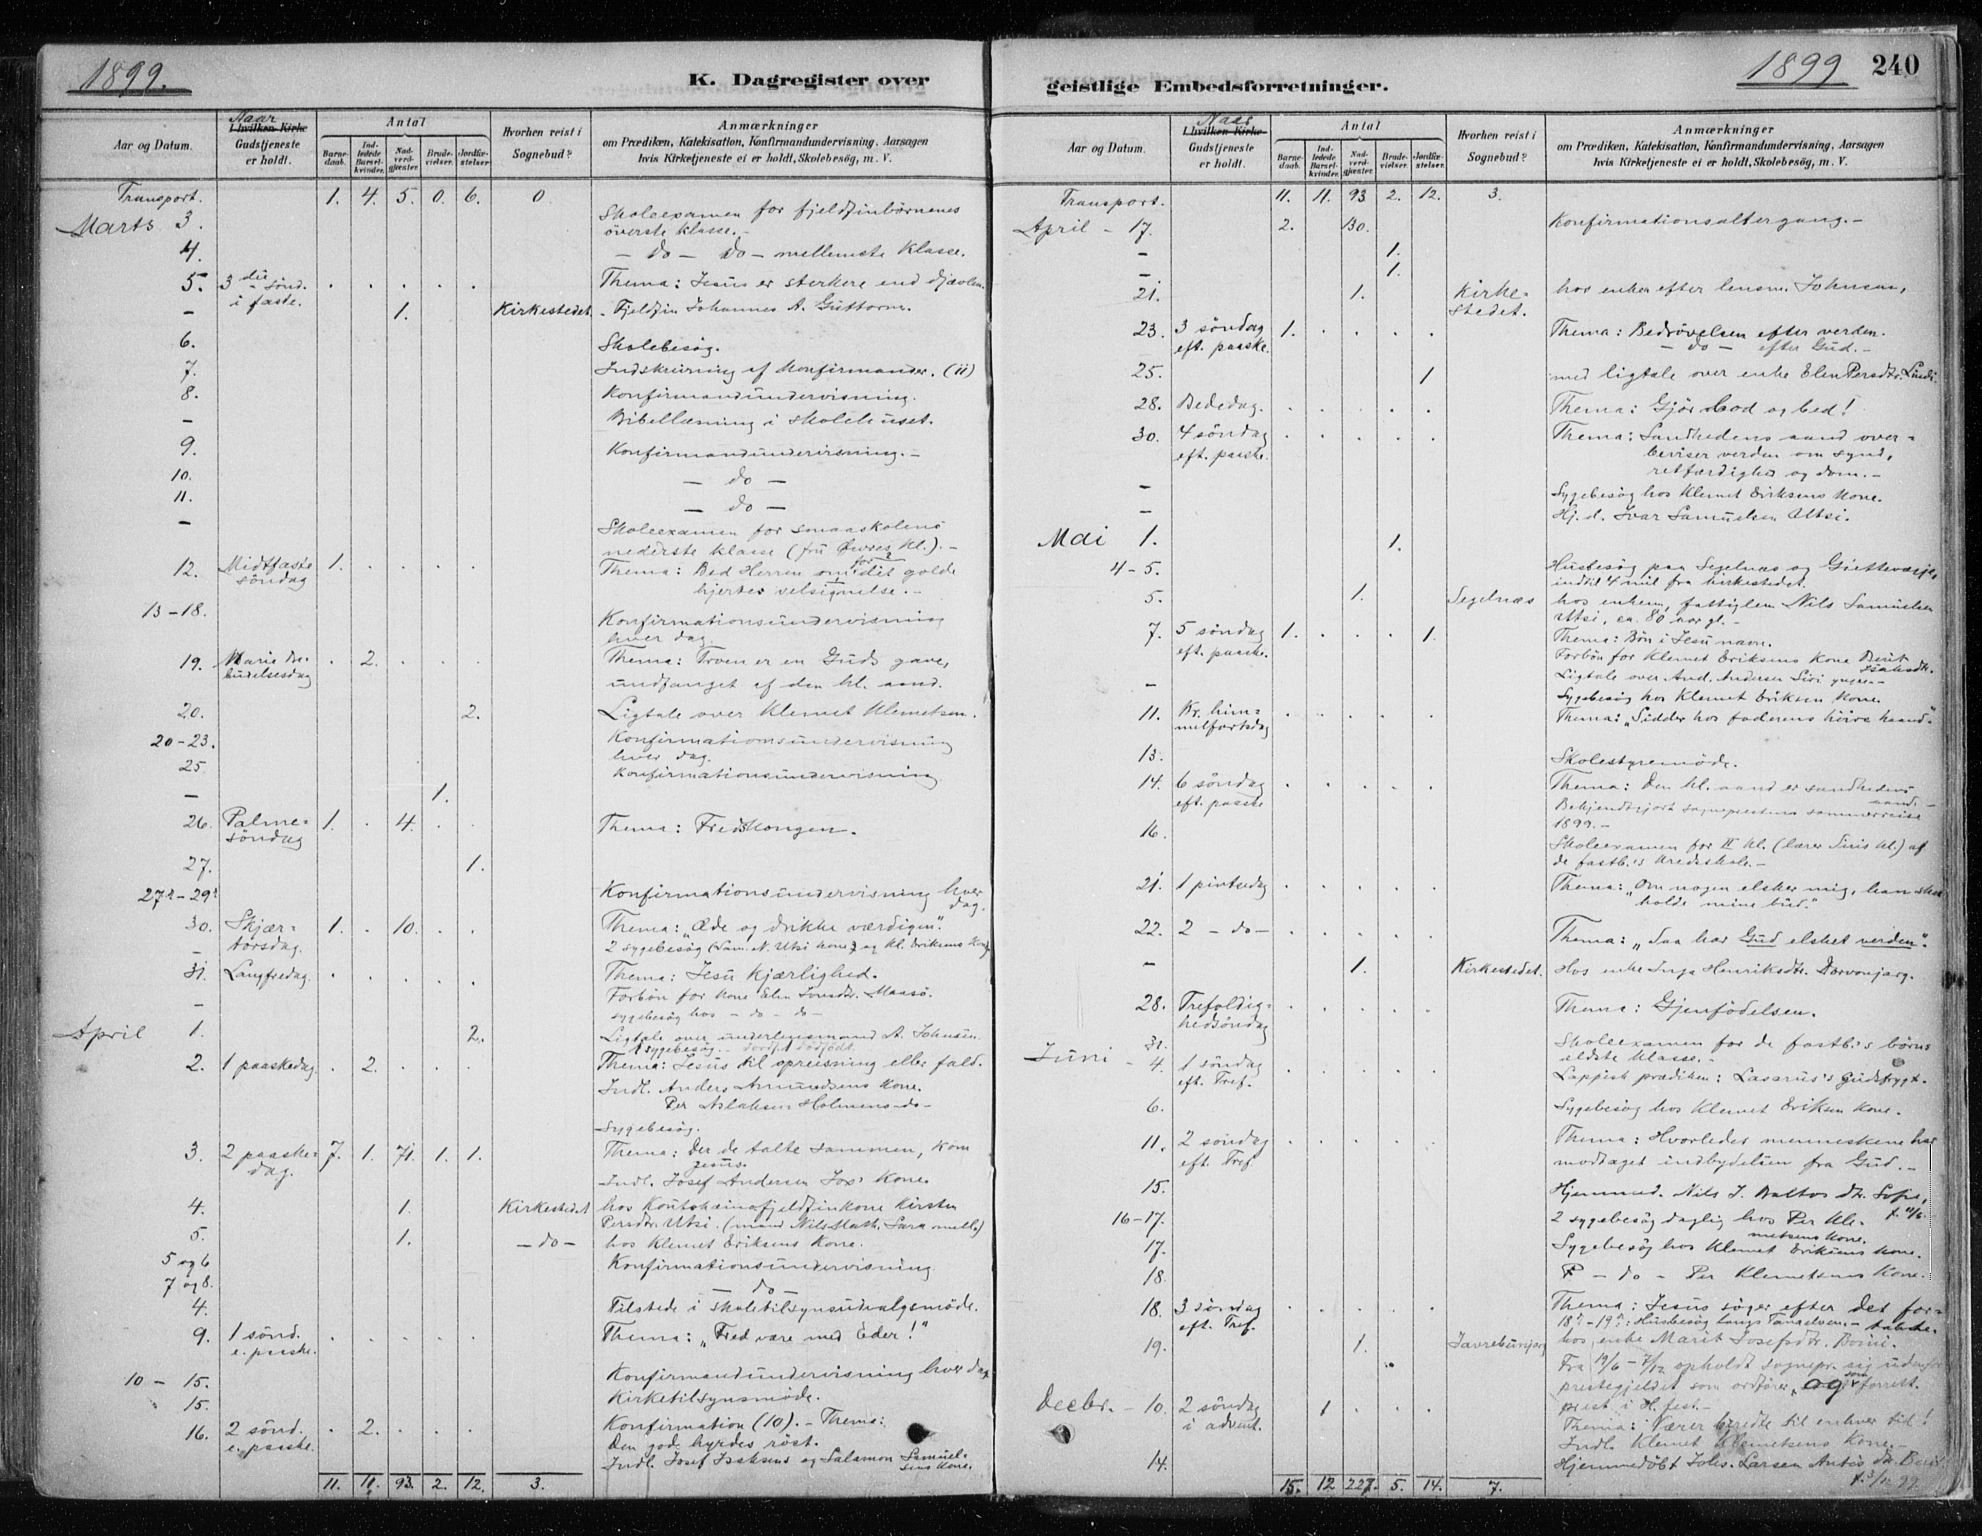 1899.
K. Dagregister over
Aar og Datum.
Naar
I hvilken Kirke
Gudstjeneste
er holdt.
Antal
Barne-
daab.
Ind-
ledede
Barsel-
kvinder.
Nad-
verd-
gjæster.
Brude-
vielser.
Jordfæ-
stelser.
Hvorhen reist i
Sognebud?
Anmærkninger
om Prædiken, Katekisation, Konfirmandundervisning, Aarsagen
hvis Kirketjeneste ei er holdt, Skolebesøg, m. V.
Transport. 1. 4. 5. 0. 6. 0
Marts 3. Skoleexamen for fjeldfinbørnenes
överste klasse. -
4. - do - do - mellemste klasse.
5. 3die sönd. i faste. . . . . . Thema: Jesus er sterkere end djævlen.
- 1. Kirkestedet. Fjeldfin Johannes A. Guttorm.
6. Skolebesøg.
7. Indskrivning af Konfirmander. (11)
8. Konfirmandundervisning.
- Bibellæsning i skolehuset.
9. Konfirmandundervisning. -
10. - do -
11. - do -
- Skoleexamen for smaaskolens
nederste klasse (frü Kl.). -
12. Midtfaste söndag 1. . . . . Thema: Bed Herren om det gode
hjertes velsignelse. -
13-18. Konfirmationsundervisning
hver dag.
19. Marie Bebudelsesdag . 2. . . . Thema: Troen er en Guds gave,
undfanget af den hl. aand.
20. 2. Ligtale over Klemet Klemetsen.
20-23. Konfirmationsundervisning
hver dag.
25. Konfirmationsundervisning
- 1.
26. Palmesöndag 1. . 4. . . Thema: Fredskongen.
27. 1.
27de-29de Konfirmationsundervisning hver
dag.
30. Skjærtorsdag. 1. . 10. . . Thema: „Æde og drikke værdigen".
- 2 sygebesøg (Sam. N. Utsi kone og Kl. Eriksens Kone)
31. Langfredag. . . . . . Thema: Jesu Kjærlighed.
Forbön for kone Elen Maasö.
- sygebesøg hos - do - do -
April 1. 2. Ligtale over underlensmand A. Johnsen.
1 sygebesøg. - dödfödt
2. 1 paaskedag . 2. . . . Thema: Jesus til opreisning eller fald.
Indl. Anders Amundsens Kone.
Per Aslaksen Holmens -do-
Sygebesøg.
3. 2 paaskedag. 7. 1. 71. 1. 1. Thema: Der de talte sammen, kom
Jesus.
Indl. Josef Andersen Kone.
4. 1. Kirkestedet hos Koutokeinofjeldfinkone Kirsten
Persdtr. Utsi. (mand Nils Math. Sara )
5. 1. - do - hos Klemet Eriksens Kone.
5 og 6 Konfirmationsundervisning
7 og 8. - do -
4. Tilstede i skoletilsynsudvalgsmöde.
9. 1 sönd. e. paaske. . . . . . Thema: „Fred være med Eder!"
10-15. Konfirmandundervisning hver dag
15. Kirketilsynsmöde.
16. 2 sönd. e. paaske. . 2. . . . Konfirmation (10). - Thema:
Den gode hyrdes röst.
Indl. Josef Isaksens og Salamon Samuelsens Kone.
11. 11. 93. 2. 12. 3.
geistlige Embedsforretninger.
1899 240
Aar og Datum.
Naar
I hvilken Kirke
Gudstjeneste
er holdt.
Antal
Barne-
daab.
Ind-
ledede
Barsel-
kvinder.
Nad-
verd-
gjæster.
Brude-
vielser.
Jordfæ-
stelser.
Hvorhen reist i
Sognebud?
Anmærkninger
om Prædiken, Katekisation, Konfirmandundervisning, Aarsagen
hvis Kirketjeneste ei er holdt, Skolebesøg, m. V.
Transport. 11. 11. 93 2. 12. 3.
April - 17. 2. 130. Konfirmationsaltergang. -
- 1.
- 1.
21. 1. Kirkestedet. hos enken efter lensm. Johnsen,
23. 3 söndag eft. paaske. 1. . . . . Thema: Bedrövelsen efter verden.
- do - efter Gud. -
25. 1 med ligtale over enke Elen Persdtr.
28. Bededag. . . . . . Thema: Gjör bod og bed!
30. 4 söndag eft. paaske. . . . . . Thema: Sandhedens aand over-
beviser verden om synd,
retfærdighed og dom. -
- Sygebesøg hos Klemet Eriksens Kone.
- Hj.d. Ivar Samuelsen Utsi.
Mai 1. 1.
4-5. Husbesøg paa Segelnæs og
indtil 4 mil fra kirkestedet.
5. 1. Segelnæs hos enkem, fattiglem Nils Samuelsen
Utsi, ca. 80 aar gl. -
7. 5 söndag eft. paaske. 1. . . . 1. Thema: Bön i Jesu navn.
Forbön for Klemet Eriksens Kone Berit Isaksdtr.
Ligtale over And. Andersen Siri yngre. -
- Sygebesøg hos Klemet Eriksen Kone.
11. Kr. himmelfartsdag . . . . . Thema: „Sidder hos faderens höire haand"
13. Skolestyremöde.
14. 6 söndag eft. paaske . . . . . Thema: Den hl. aand er sandhedens
aand. -
Bekjendtgjort sogneprestens sommerreise
1899. -
16. Skoleexamen for II kl. (lærer kl.) af
de fastb.s kredsskole. -
21. 1 pintsedag . . . . . Thema: „Om nogen elsker mig, han skal
holde mine bud."
22. 2 - do - . . . . . Thema: „Saa har Gud elsket verden".
- 1. Kirkestedet. Hos enke Inga Henriksdtr.
28. Trefoldighedsöndag . . . . . Thema: Gjenfödelsen.
31. Skoleexamen for de fastb.s börns
eldste klasse. -
Juni - 4. 1 söndag eft. Tref. . . . . . Lappisk prædiken: Lasarus's Gudsfrygt.
6. Sygebesøg hos Klemet Eriksen Kone.
11. 2 söndag eft. Tref . . . . . Thema: Hvorledes menneskene har
modtaget indbydelsen fra Gud. -
15. Hjemmed. Nils J. Baltos dtr. Sofie,
16-17. 2 sygebesøg daglig hos Per Kle-
metsens Kone.
17. Sygebesøg hos Klemet Eriksens Kone.
18. - do - Per Klemetsens Kone.
18. 3 söndag eft. Tref. . . . . . Thema: Jesus söger efter det for-
tabte.
18de-19de: Husbesøg langs Tanaelven. -
19. 1. hos enke Marit Josefsdtr.
Fra 19/6 - 7/12 opholdt sognepr. sig udenfor
prestegjeldet som ordförer og som forrett.
prest i H.fest. -
Decbr. - 10. 2 söndag i advent. . 1 . . . Thema: Værer beredte til enhver tid!
Indl. Klemet Klemetsens Kone. -
14. Hjemmedöbt Johs. Larsen Antis dtr. Berit
f. 3/12 99.
15. 12 227. 5. 14. 7.